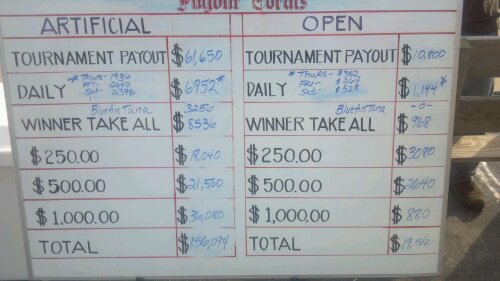 Payout
ARTIFICIAL
TOURNAMENT PAYOUT $61,650
* Thurs- 1936
DAILY Fri- 2640 $6952*
Sat- 2376
Bluefin Tuna 3256
WINNER TAKE ALL $8536
$250.00 $18,040
$500.00 $21,560
$1,000.00 $36,080
TOTAL $156,074
OPEN
TOURNAMENT PAYOUT $10,800
* Thurs- $352
DAILY Fri- $264 $1,144*
Sat- $528
Bluefin Tuna -0-
WINNER TAKE ALL $968
$250.00 $3080
$500.00 $2640
$1,000.00 $880
TOTAL $19,512